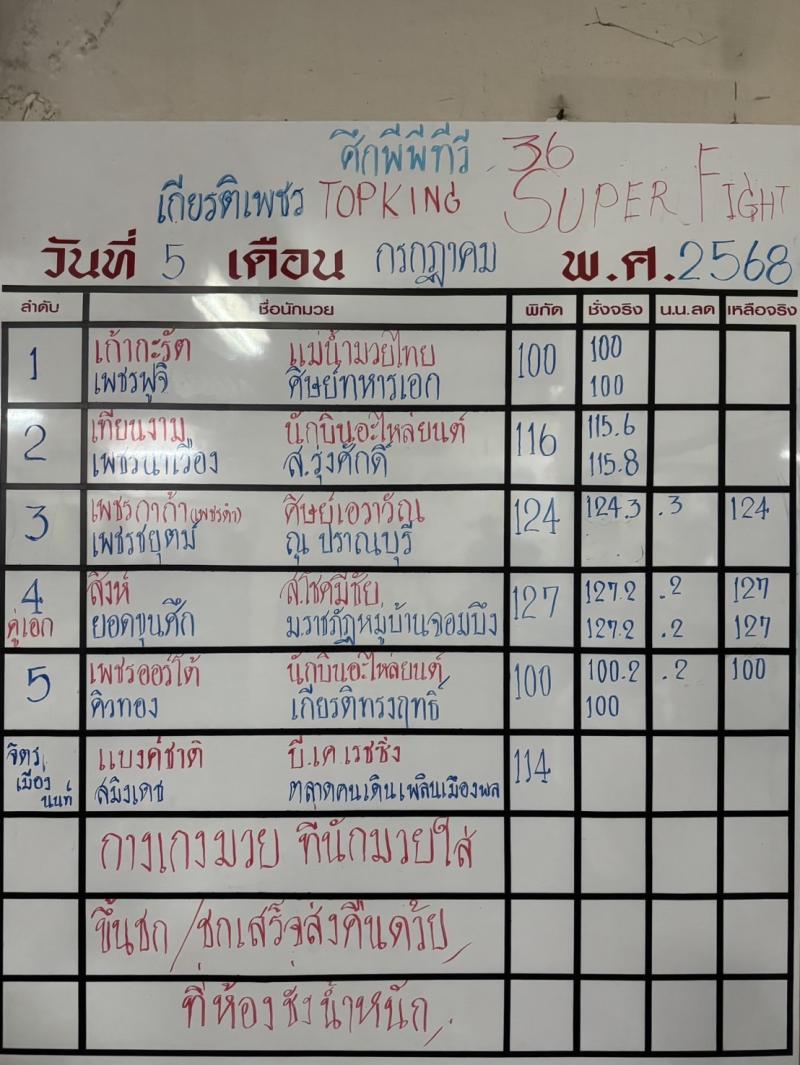 ศึกพีพีทีวี 36
เกียรติเพชร TOPKING SUPER FIGHT
วันที่ 5 เดือน กรกฎาคม พ.ศ. 2568
ลำดับ ชื่อนักมวย พิกัด ชั่งจริง น.น.ลด เหลือจริง
1 เก้ากะรัต แม่น้ำมวยไทย 100 100
เพชรพูจิ ศิษย์ทหารเอก 100
2 เทียนงาม นักบินอะไหล่ยนต์ 116 115.6
เพชรนาเรือง ส.รุ่งศักดิ์ 115.8
3 เพชรกาก้า (เพชรดำ) ศิษย์เอราวัณ 124 124.3 .3 124
เพชรชยุตม์ ณ ปราณบุรี
4 สิงห์ ส.โชคมีชัย 127 127.2 .2 127
คู่เอก ยอดขุนศึก ม.ราชภัฏหมู่บ้านจอมบึง 127.2 .2 127
5 เพชรออร์โต้ นักบินอะไหล่ยนต์ 100 100.2 .2 100
คิวทอง เกียรติทรงฤทธิ์ 100
จิตรเมืองนนท์ แบงค์ชาติ บี.เค เรซซิ่ง 114
สมิงเดช ตลาดคนเดินเพลินเมืองพล
กางเกงมวย ที่นักมวยใส่
ขึ้นชก / ชกเสร็จส่งคืนด้วย
ที่ห้องชั่งน้ำหนัก